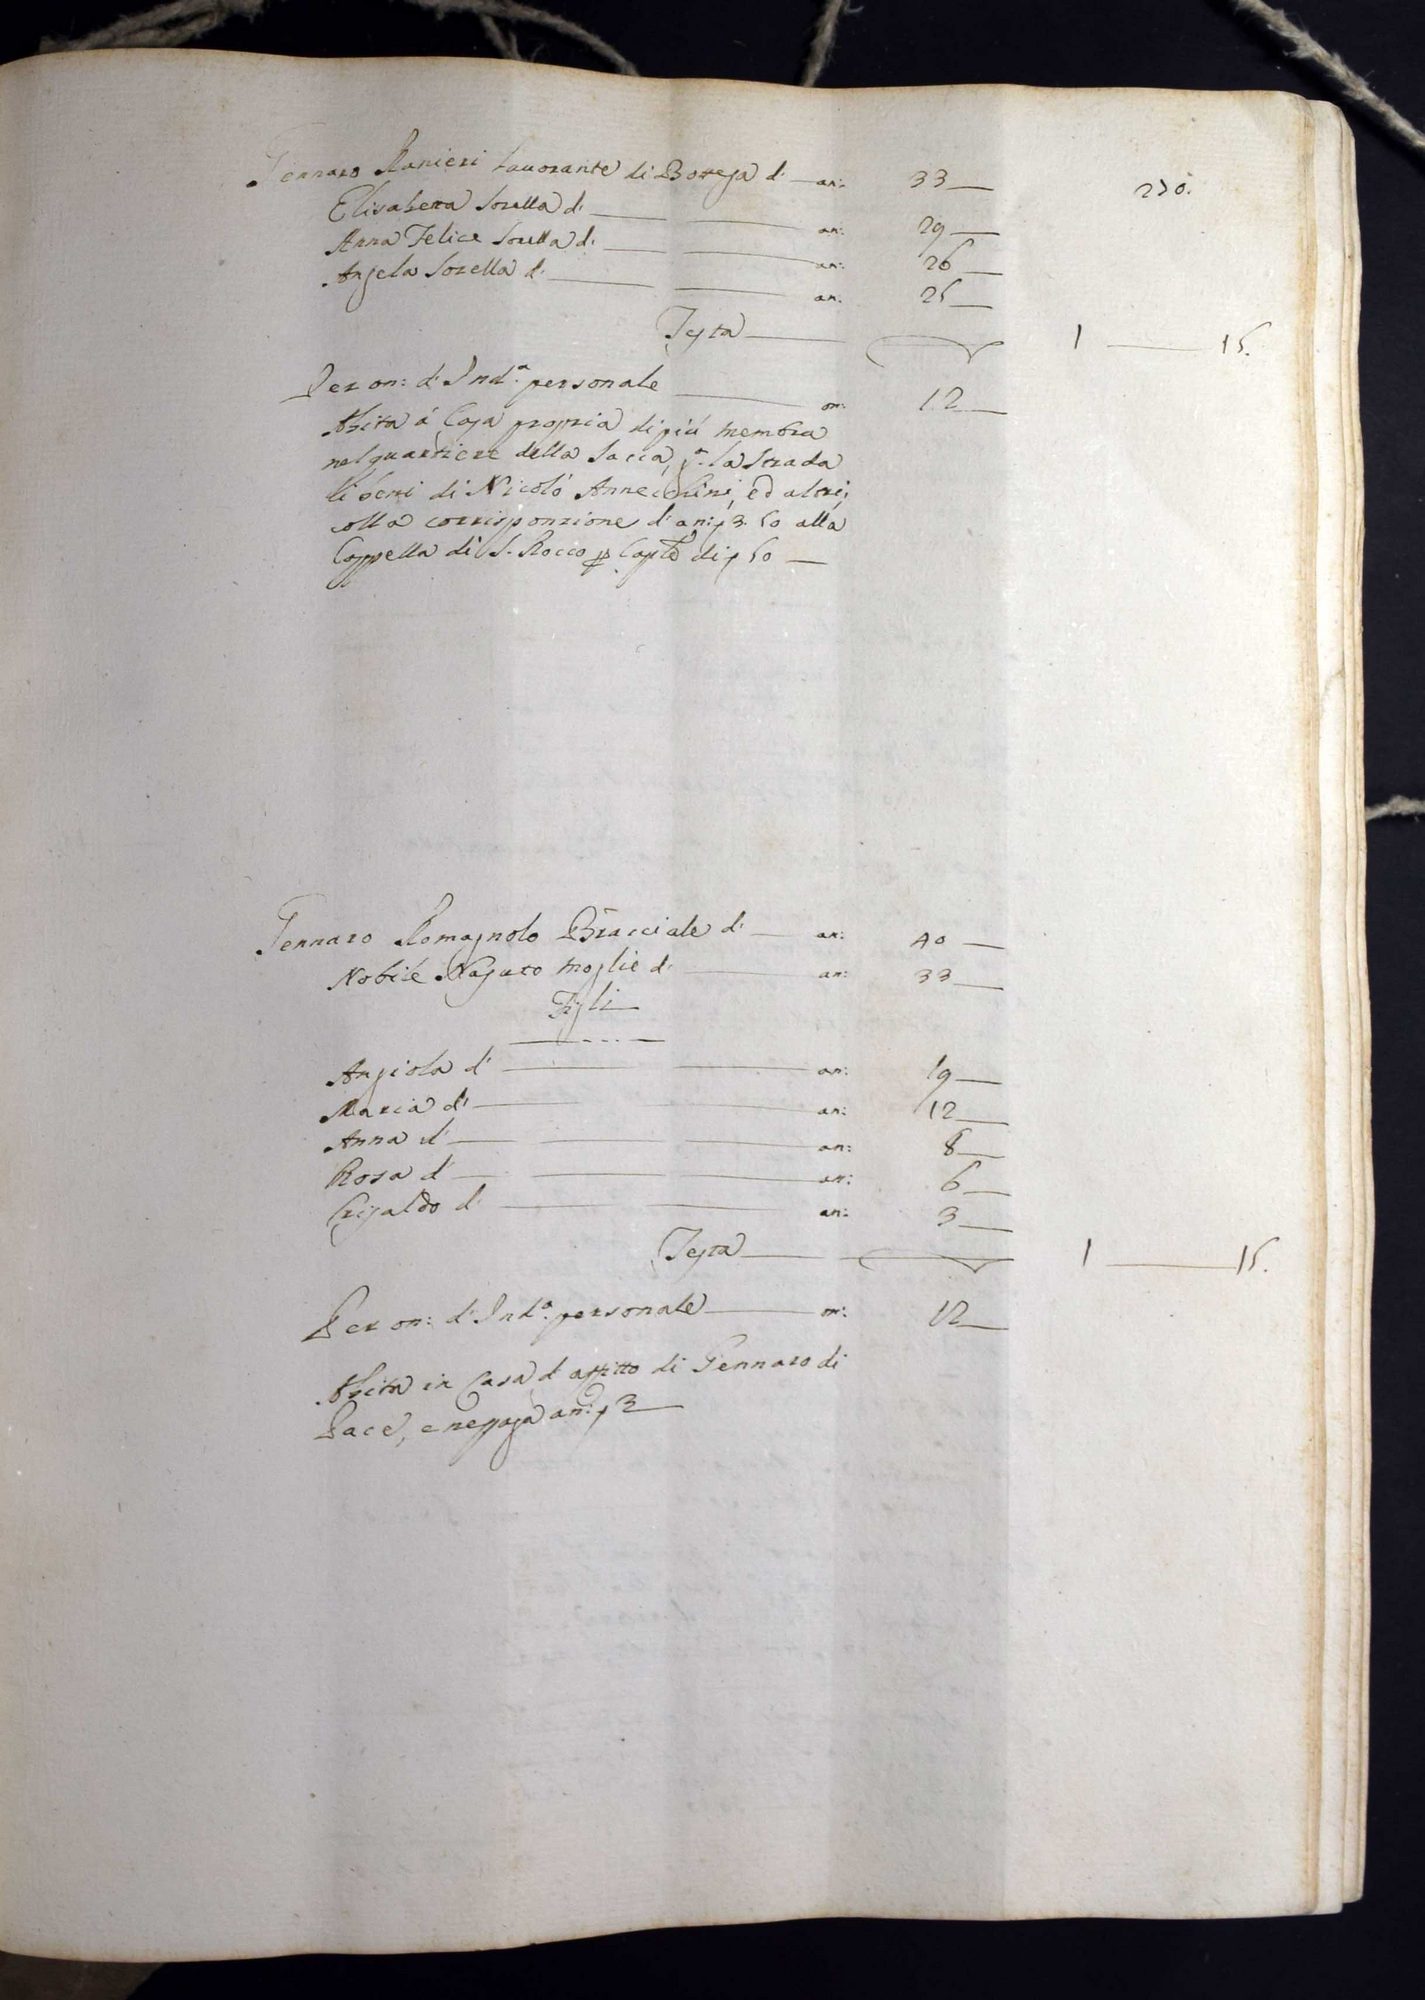 230.
Gennaro Ranieri lavorante di Bottega d' — an: 33 —
Elisabetta Sorella d' — an: 29 —
Anna Felice Sorella d' — an: 26 —
Angela Sorella d' — an: 25 —
Testa — 1 — 15.
Per on: d' Ind.ª personale — on: 12 —
Abita á Casa propria di piú membra
nel quartiere della la Strada
li beni di Nicoló ed altri,
colla corrisponzione d' an: 3. 50 alla
Cappella di S. Rocco di 50 —
Gennaro Romagnolo Bracciale d' — an: 40 —
Nobile moglie d' — an: 33 —
Figli
Angiola d' — an: 19 —
Maria d' — an: 12 —
Anna d' — an: 8 —
Rosa d' — an: 6 —
d' — an: 3 —
Testa — 1 — 15.
Per on: d' Ind.ª personale — on: 12 —
Abita in Casa d' affitto di Gennaro di
Pace, e ne paga an: 3 —